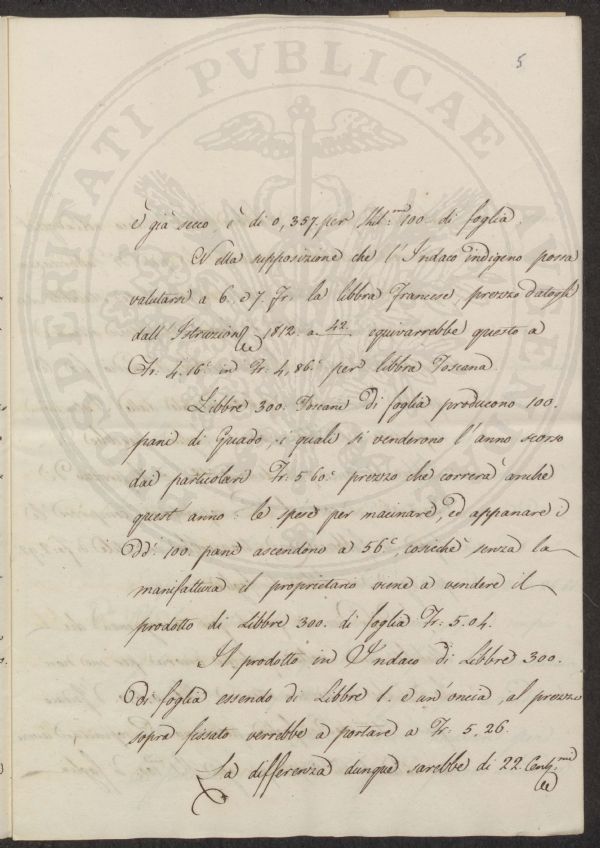 5
è già secco, è di 0,357. per Kil:mi 100 di foglia.
Nella supposizione che l'Indaco indigeno possa
valutarsi a 6. e 7. Fr. la libbra Francese, prezzo datogli
dall'Istruzione 1812. a 42. equivarrebbe questo a
Fr: 4. 16.c in Fr: 4,86.c per libbra Toscana.
Libbre 300. Toscane di foglia producono 100.
pani di Guado, i quali si venderono l'anno scorso
dai particolari Fr: 5 60.c prezzo che correrà anche
quest'anno: le spese per macinare, ed appanare i
dd.i 100. pani ascendono a 56.c, cosicchè senza la
manifattura il proprietario viene a vendere il
prodotto di Libbre 300. di foglia Fr: 5.04.
Il prodotto in Indaco di Libbre 300.
di foglia essendo di Libbre 1. e un'oncia, al prezzo
sopra fissato verrebbe a portare a Fr: 5.26.
La differenza dunque sarebbe di 22. Cent:mi
PROSPERITATI PVBLICAE